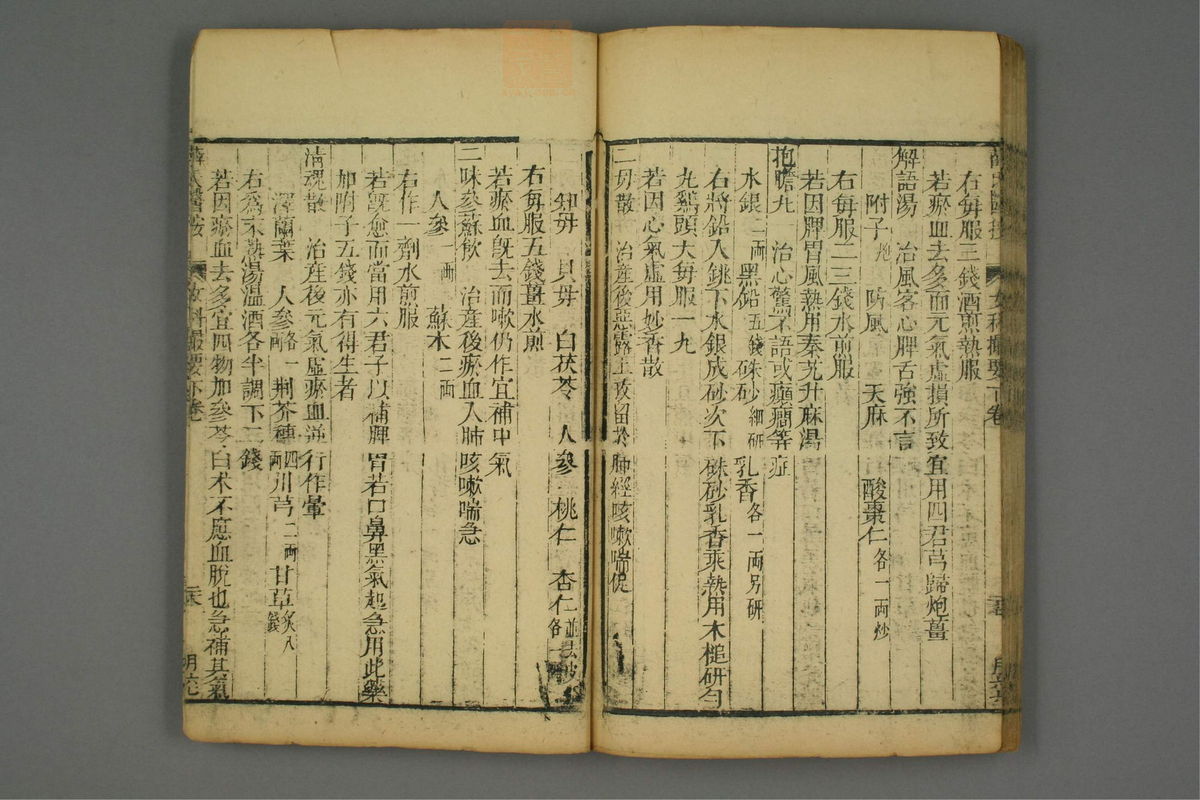 右每服三錢酒煎熱服
若瘀血去多而元氣虛損所致宜用四君芎歸炮薑
解語湯　治風客心脾舌強不言
附子炮　防風　天麻　酸棗仁各一兩炒
右每服二三錢水煎服
若因脾胃風熱用秦艽升麻湯
抱膽丸　治心驚不語或癲癇等症
水銀二兩　黑鉛五錢　硃砂細研　乳香各一兩另研
右將鉛入銚下水銀成砂次下硃砂乳香乘熱用木槌研勻
丸雞頭大每服一丸
若因心氣虛用妙香散
二母散　治產後惡露上攻留於肺經咳嗽喘促
知母　貝母　白茯苓　人參　桃仁　杏仁並去各一
右每服五錢薑水煎
若瘀血既去而嗽仍作宜補中氣
二味參蘇飲　治產後瘀血入肺咳嗽喘急
人參一兩　蘇木二兩
右作一劑水煎服
若既愈而當用六君子以補脾胃若口鼻黑氣起急用此藥
加附子五錢亦有得生者
清魂散　治產後元氣虛瘀血逆行作暈
澤蘭葉　人參各一兩　荊芥穗四兩　川芎二兩　甘草炙八錢
右為末熱湯溫酒各半調下二錢
若因瘀血去多宜四物加參苓白朮不應血脫也急補其氣
薛氏醫按　女科撮要下卷